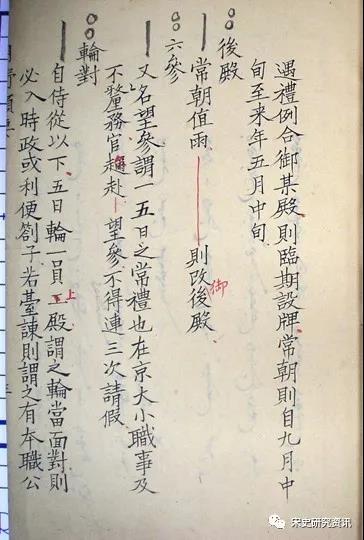 遇禮例合御某殿則臨期設牌常朝則自九月中
旬至来年五月中旬
後殿
常朝值雨 則改御後殿
六參
又名望參謂一五日之常禮也在京大小職事及
不釐務官趨赴 望參不得連三次請假
輪對
自侍從以下五日輪一員上殿謂之輪當面對則
必入時政或利便劄子若臺諫則謂之有本職公
宋史研究资讯